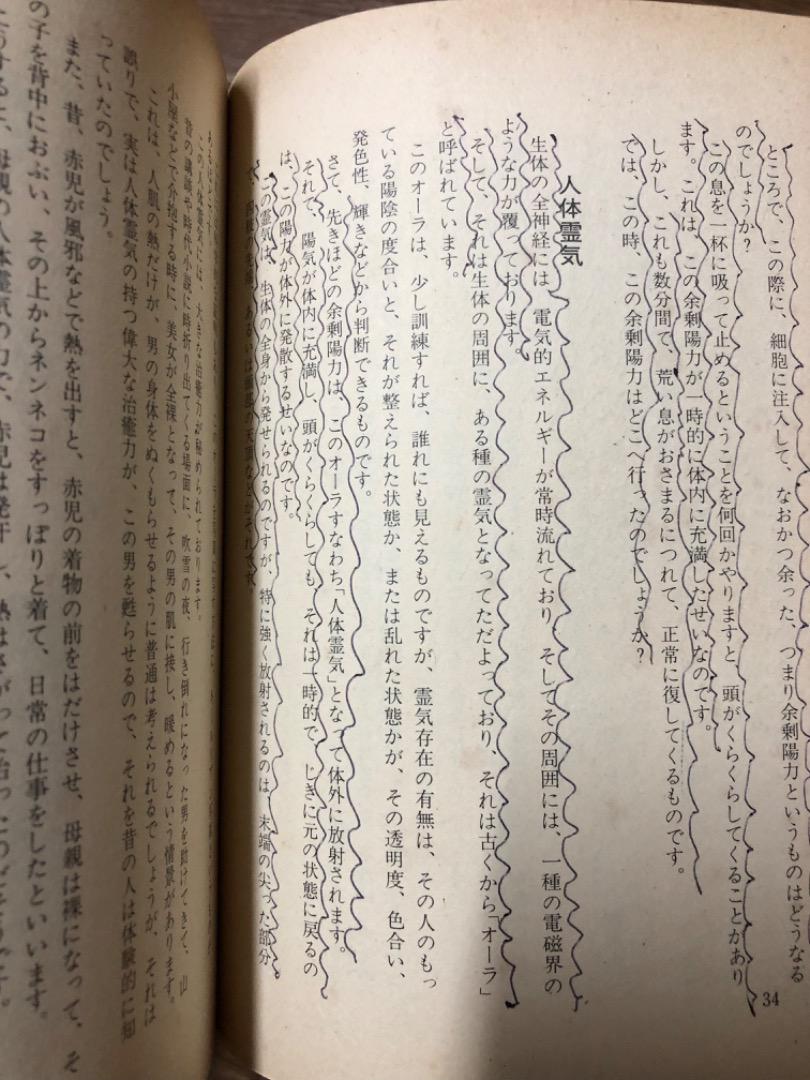 ところで、この際に、細胞に注入して、なおかつ余った、つまり余剰陽力というものはどうなる
のでしょうか?
この息を一杯に吸って止めるということを何回かやりますと、頭がくらくらしてくることがあり
ます。これは、この余剰陽力が一時的に体内に充満したせいなのです。
しかし、これも数分間で、荒い息がおさまるにつれて、正常に復してくるものです。
では、この時、この余剰陽力はどこへ行ったのでしょうか?
人体霊気
生体の全神経には、電気的エネルギーが常時流れており、そしてその周囲には、一種の電磁界の
ような力が覆っております。
そして、それは生体の周囲に、ある種の霊気となってただよっており、それは古くから「オーラ」
と呼ばれています。
このオーラは、少し訓練すれば、誰れにも見えるものですが、霊気存在の有無は、その人のもっ
ている陽陰の度合いと、それが整えられた状態か、または乱れた状態かが、その透明度、色合い、
発色性、輝きなどから判断できるものです。
さて、先きほどの余剰陽力は、このオーラすなわち「人体霊気」となって体外に放射されます。
それで、陽気が体内に充満し、頭がくらくらしても、それは一時的で、じきに元の状態に戻るの
は、この陽力が体外に発散するせいなのです。
この霊気は、生体の全身から発せられるのですが、特に強く放射されるのは、末端の尖った部分
34
この人体霊気には、大きな治癒力が秘められております。
昔の講談や時代小説に時折り出てくる場面に、吹雪の夜、行き倒れになった男を助けてきて、山
小屋などで介抱する時に、美女が全裸となって、その男の肌に接し、暖めるという情景があります。
これは、人肌の熱だけが、男の身体をぬくもらせるように普通は考えられるでしょうが、それは
誤りで、実は人体霊気の持つ偉大な治癒力が、この男を甦らせるので、それを昔の人は体験的に知
っていたのでしょう。
また、昔、赤児が風邪などで熱を出すと、赤児の着物の前をはだけさせ、母親は裸になって、そ
の子を背中におぶい、その上からネンネコをすっぽりと着て、日常の仕事をしたといいます。